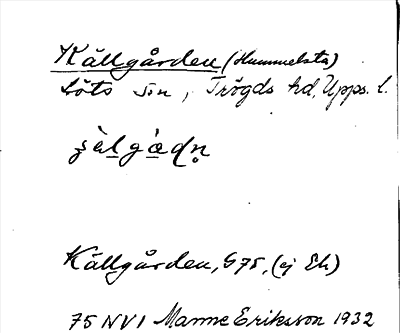 Källgården (Hummelsta)
Löts sn, Trögds hd, Upps. l.
Källgården, G75, (ej Ek)
75 NV1 Manne Eriksson 1932